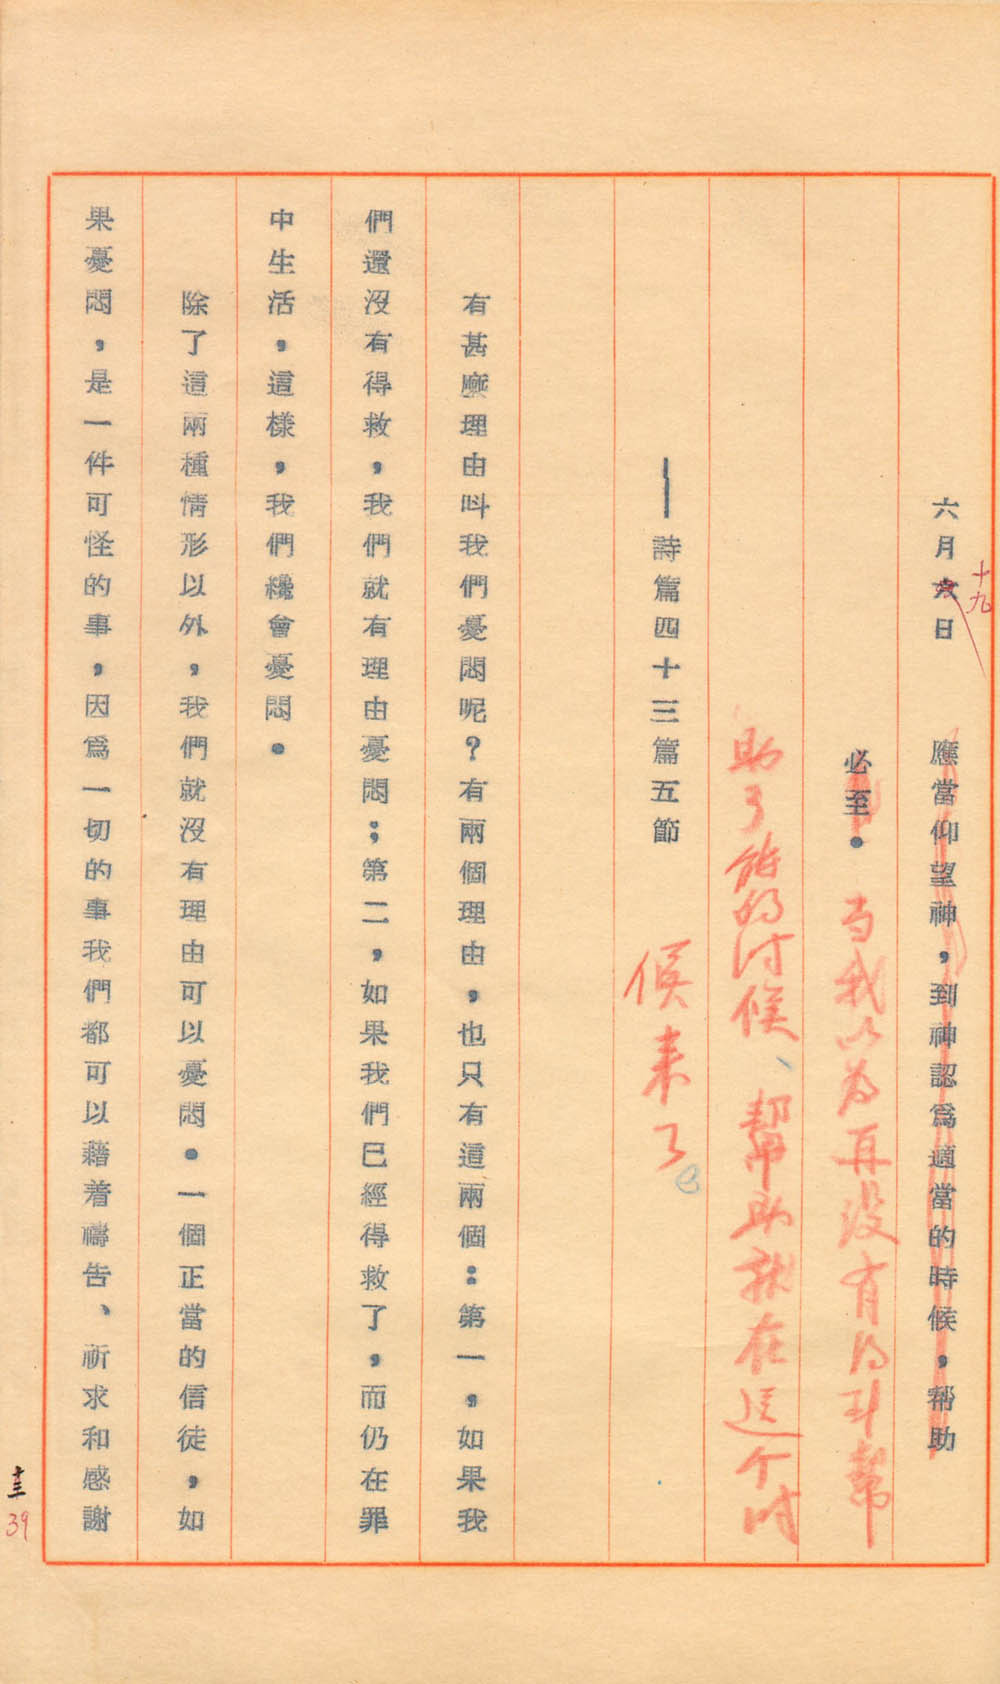 六月六日　應當仰望神，到神認爲適當的時候，幫助
十九
必至。
当我以为再没有的引幫
助了能的时候、幫助就在这个时
候来了
——詩篇四十三篇五節
有甚麽理由叫我們憂悶呢？有兩個理由，也只有這兩個：第一，如果我
們還沒有得救，我們就有理由憂悶；第二，如果我們已經得救了，而仍在罪
中生活，這樣，我們纔會憂悶。
除了這兩種情形以外，我們就沒有理由可以憂悶。一個正當的信徒，如
果憂悶，是一件可怪的事，因爲一切的事我們都可以藉着禱告、祈求和感謝
39